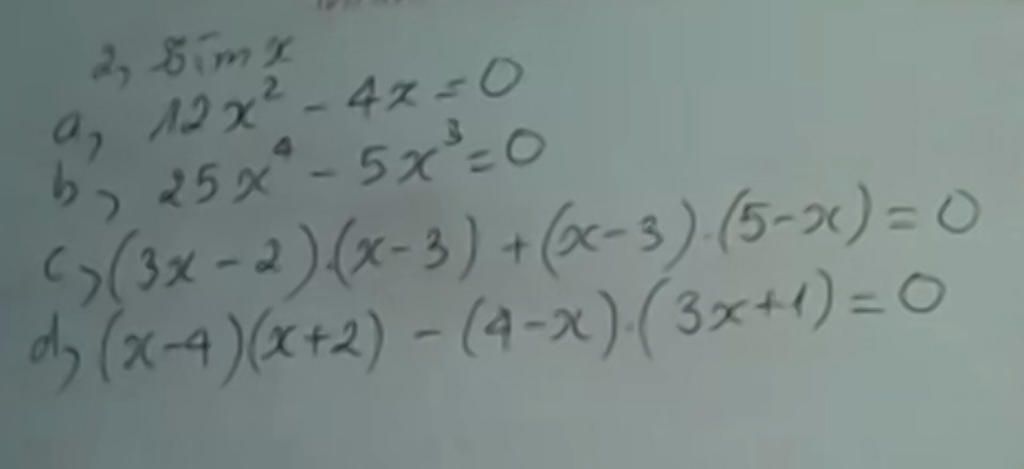 2, Tìm x
a, 12x² - 4x = 0
b, 25x⁴ - 5x³ = 0
c, (3x - 2).(x - 3) + (x - 3).(5 - x) = 0
d, (x - 4)(x + 2) - (4 - x).(3x + 1) = 0